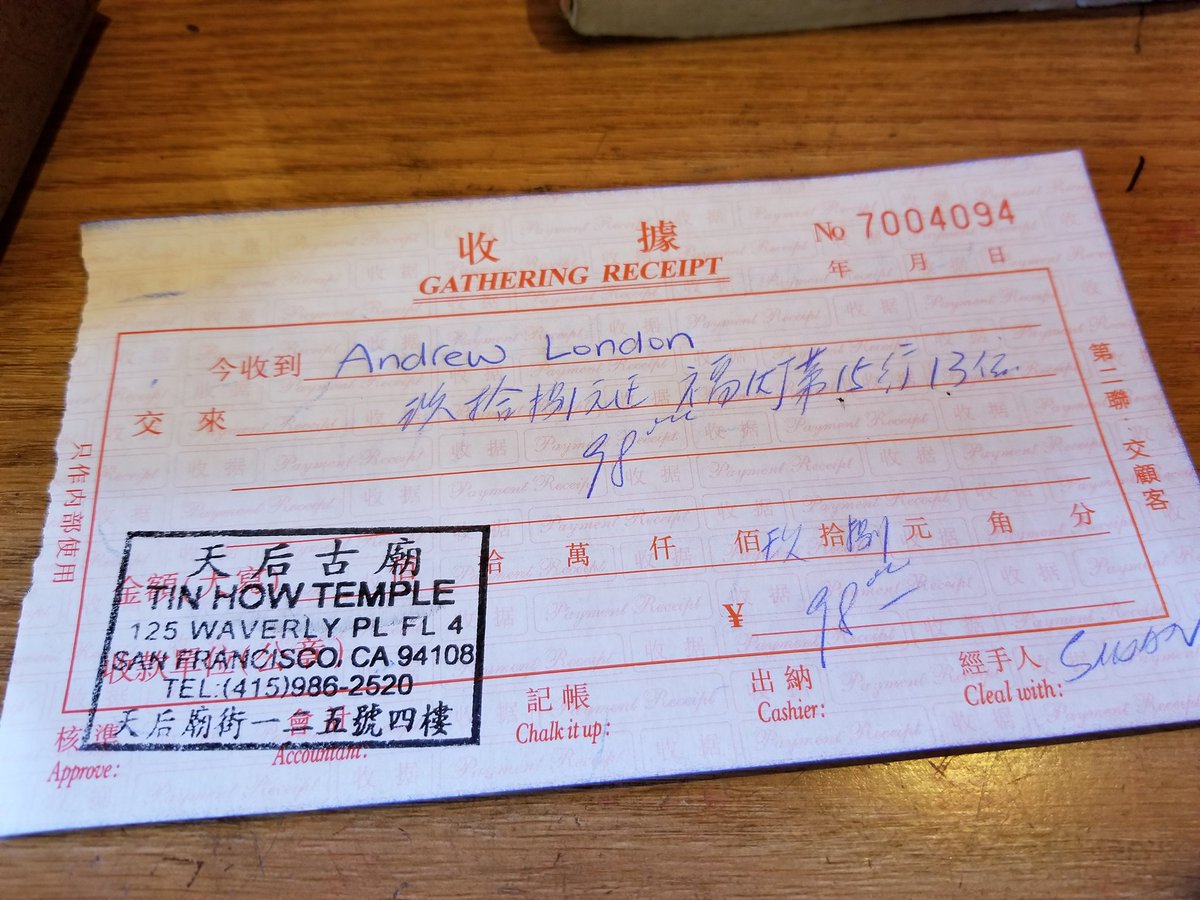 收據
GATHERING RECEIPT
No 7004094
年 月 日
今收到 Andrew London
交來 玖拾捌元正 福灯第15行13位
98
拾 萬 仟 佰 玖 拾 捌 元 角 分
金額(大寫)
¥ 98
收款單位(公章)
天后古廟
TIN HOW TEMPLE
125 WAVERLY PL FL 4
SAN FRANCISCO. CA 94108
TEL:(415)986-2520
天后廟街一二五號四樓
核準 會計 記帳 出納 經手人 Susan
Approve: Accountant: Chalk it up: Cashier: Cleal with:
只作內部使用
第二聯 交顧客
收据 Payment Receipt